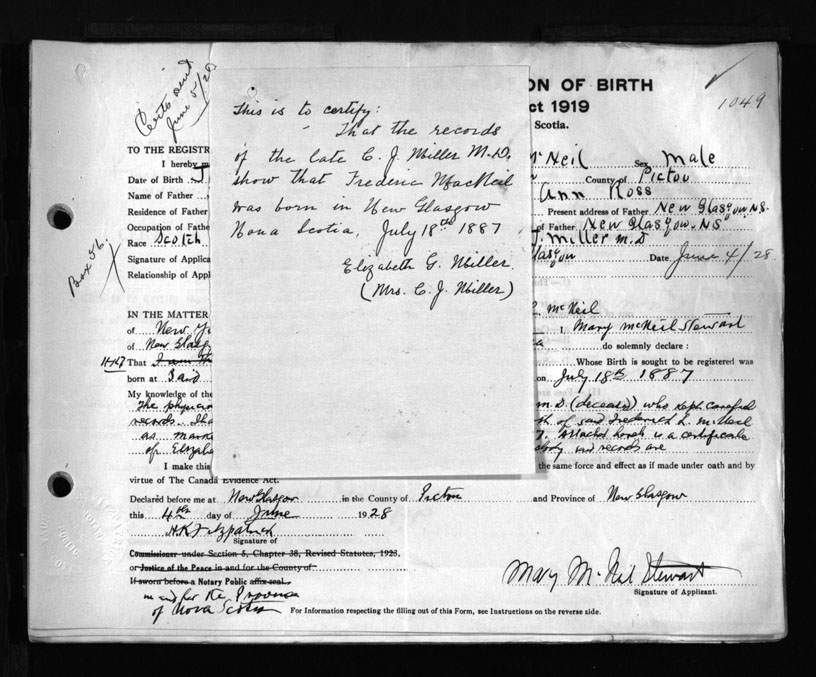 Certs send
June 5/28
Box 56.
1049
ON OF BIRTH
ct 1919
Scotia.
This is to certify:
That the records
of the late C. J. Miller M.D.
show that Frederic MacNeil
was born in New Glasgow
Nova Scotia, July 18th 1887
Elizabeth G. Miller
(Mrs. C. J. Miller)
TO THE REGISTR
I hereby
McNeil Sex Male
Date of Birth
County of Pictou
Name of Father
Ann Ross
Residence of Father
Present address of Father New Glasgow. N.S.
Occupation of Fathe
of Father New Glasgow. N.S
Race Scotch
J. Miller M.D
Signature of Applica
lasgow Date June 4/28
Relationship of Appl
IN THE MATTER
McNeil
of New Y
I, Mary McNeil Stewart
of New Glasg
do solemnly declare :
That I am the
Whose Birth is sought to be registered was
born at Said
on July 18th 1887
My knowledge of the
The physician
M.D (deceased) who kept careful
records.
of said Frederick L. McNeil
as
Attached hereto is a certificate
of Elizabe
and records are
I make this
the same force and effect as if made under oath and by
virtue of The Canada Evidence Act.
Declared before me at New Glasgow in the County of Pictou and Province of New Glasgow
this 4th day of June 1928
H K Fitzpatrick
Signature of
Commissioner under Section 5, Chapter 38, Revised Statutes, 1923.
or Justice of the Peace in and for the County of
If sworn before a Notary Public affix seal.
in and for the Province
of Nova Scotia
Mary McNeil Stewart
Signature of Applicant.
For Information respecting the filling out of this Form, see Instructions on the reverse side.